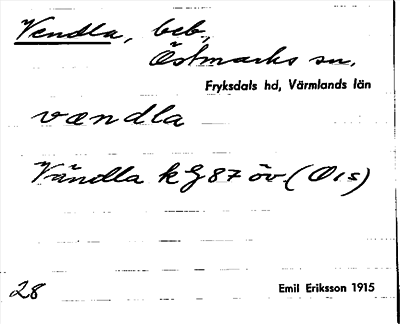 Vendla, beb.,
Östmarks sn.
Fryksdals hd, Värmlands län
vændla
Vändla k G 87 öv. (O1s)
28
Emil Eriksson 1915